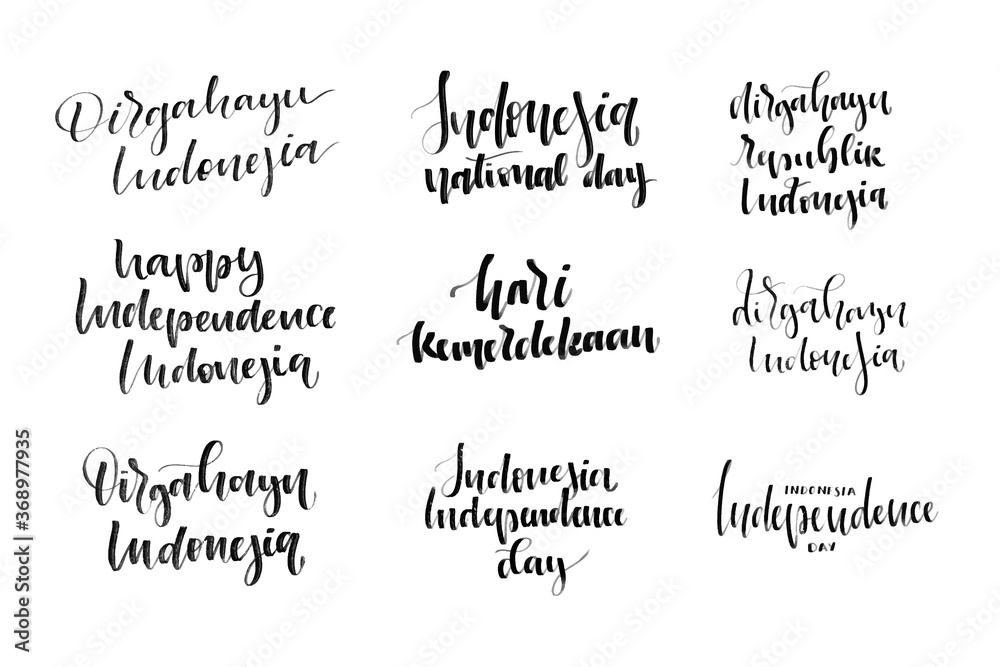 Dirgahayu
Indonesia
Indonesia
national day
dirgahayu
republik
Indonesia
happy
Independence
Indonesia
hari
kemerdekaan
dirgahayu
Indonesia
Dirgahayu
Indonesia
Indonesia
Independence
day
INDONESIA
Independence
DAY
Adobe Stock | #368977935